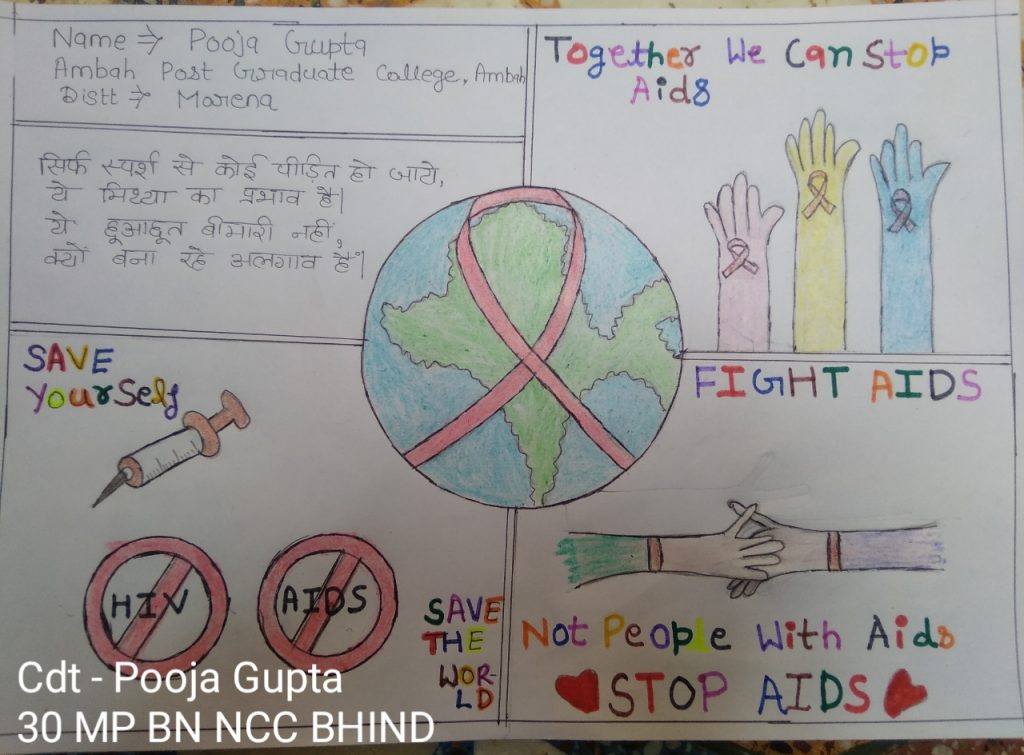 Name → Pooja Gupta
Ambah Post Graduate College, Ambah
Distt → Morena
सिर्फ स्पर्श से कोई पीड़ित हो जाये,
ये मिथ्या का प्रभाव है।
ये छुआछूत बीमारी नहीं,
क्यों बना रहे अलगाव है।
Together We Can Stop
Aids
SAVE
YourSelf
HIV
AIDS
SAVE
THE
WOR-
LD
FIGHT AIDS
Not People With Aids
STOP AIDS
Cdt - Pooja Gupta
30 MP BN NCC BHIND